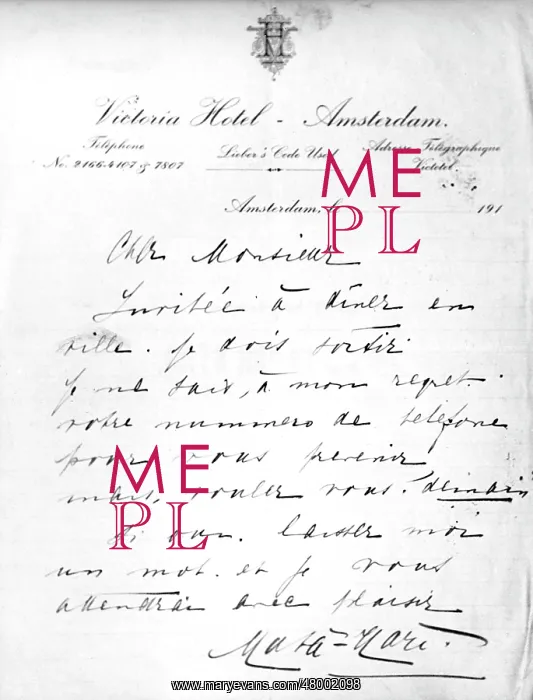 H
Victoria Hotel - Amsterdam.
Téléphone
No. 2166.4107 & 7807
Lieber's Code Used
Adresse Télégraphique
Victotel.
Amsterdam, le 191
Cher Monsieur
Invitée à dîner en
ville. je dois sortir
je ne sais, à mon regret.
votre nummero de telefone
pour vous prevenir
mais, voulez vous. demain
Si oui. laissez moi
un mot. et je vous
attendrai avec plaisir
Mata=Hari.
ME
PL
ME
PL
www.maryevans.com/48002098